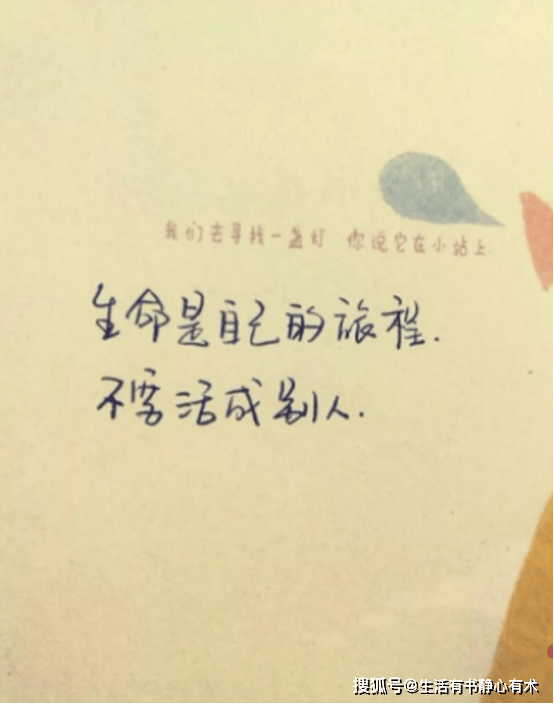 我们去寻找一盏灯 你说它在小站上
生命是自己的旅程.
不要活成别人.
搜狐号@生活有书静心有术